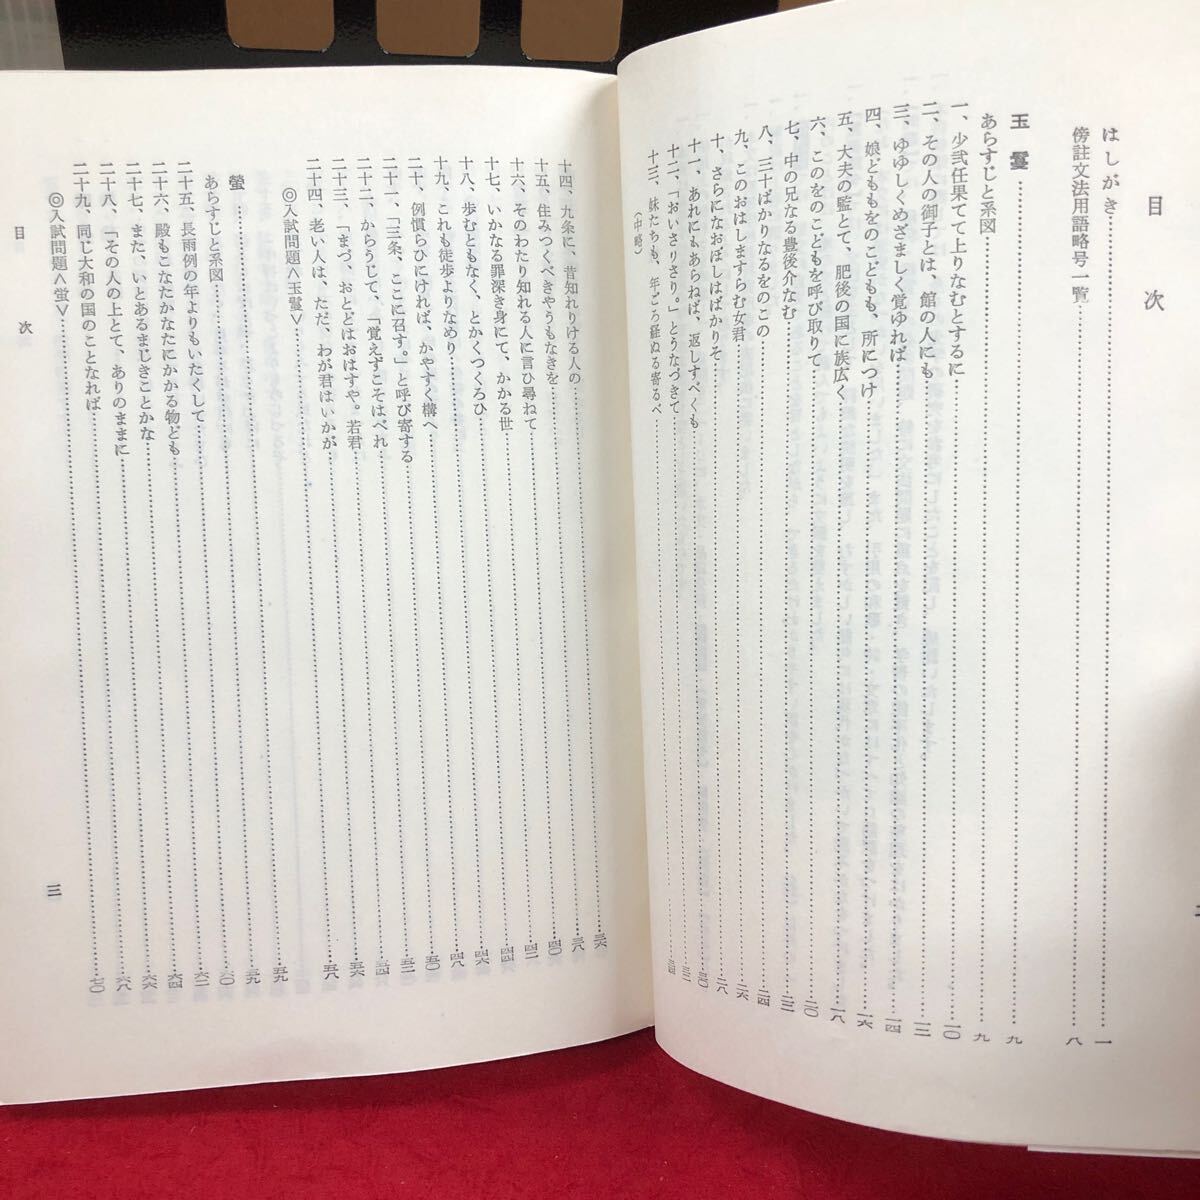 目次
はしがき……一
傍註文法用語略号一覧……八
玉鬘……九
あらすじと系図……九
一、少弐任果てて上りなむとするに……一〇
二、その人の御子とは、館の人にも……一二
三、ゆゆしくめざましく覚ゆれば……一四
四、娘どももをのこどもも、所につけ……一六
五、大夫の監とて、肥後の国に族広く……一八
六、このをのこどもを呼び取りて……二〇
七、中の兄なる豊後介なむ……二二
八、三十ばかりなるをのこの……二四
九、このおはしますらむ女君……二六
十、さらになおぼしはばかりそ……二八
十一、あれにもあらねば、返しすべくも……三〇
十二、「おいさりさり。」とうなづきて……三二
十三、妹たちも、年ごろ経ぬる寄るべ……三四
(中略)
十四、九条に、昔知れりける人の……三六
十五、住みつくべきやうもなきを……三八
十六、そのわたり知れる人に言ひ尋ねて……四〇
十七、いかなる罪深き身にて、かかる世……四二
十八、歩むともなく、とかくつくろひ……四四
十九、これも徒歩よりなめり……四六
二十、例慣らひにければ、かやすく構へ……四八
二十一、「三条、ここに召す。」と呼び寄する……五〇
二十二、からうじて、「覚えずこそはべれ……五二
二十三、「まづ、おとどはおはすや。若君……五四
二十四、老い人は、ただ、わが君はいかが……五六
◎入試問題<玉鬘>……五八
螢……五九
あらすじと系図……五九
二十五、長雨例の年よりもいたくして……六〇
二十六、殿もこなたかなたにかかる物ども……六二
二十七、また、いとあるまじきことかな……六四
二十八、「その人の上とて、ありのままに……六六
二十九、同じ大和の国のことなれば……六八
◎入試問題<螢>……七〇
目次
三